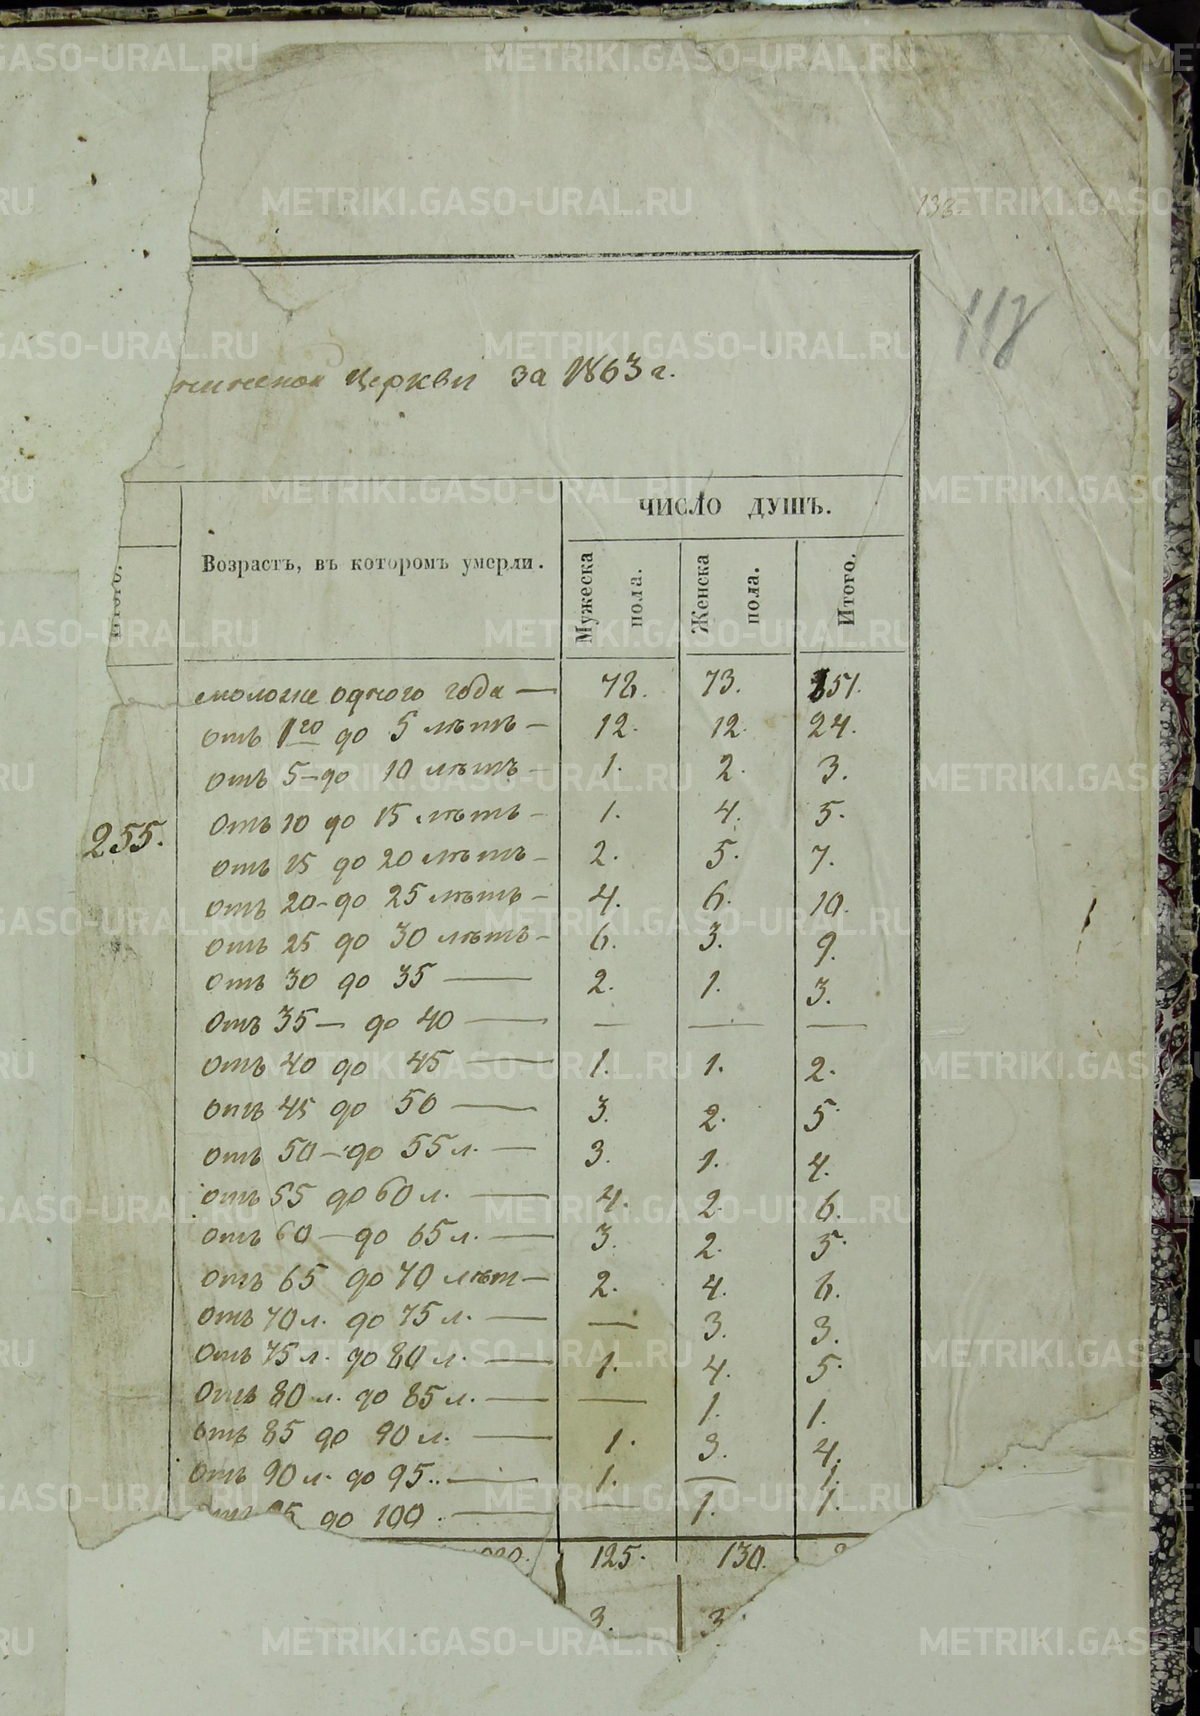 133
118
церкви за 1863 г.
ЧИСЛО ДУШЪ.
Возрастъ, въ которомъ умерли.
Мужеска пола.
Женска пола.
Итого.
Итого.
моложе одного года — 78. 73. 151.
отъ 1го до 5 лѣтъ — 12. 12. 24.
отъ 5 — до 10 лѣтъ — 1. 2. 3.
отъ 10 до 15 лѣтъ — 1. 4. 5.
255.
отъ 15 до 20 лѣтъ — 2. 5. 7.
отъ 20 — до 25 лѣтъ — 4. 6. 10.
отъ 25 до 30 лѣтъ — 6. 3. 9.
отъ 30 до 35 — 2. 1. 3.
отъ 35 — до 40 — — — —
отъ 40 до 45 — 1. 1. 2.
отъ 45 до 50 — 3. 2. 5.
отъ 50 — до 55 л. — 3. 1. 4.
отъ 55 до 60 л. — 4. 2. 6.
отъ 60 — до 65 л. — 3. 2. 5.
отъ 65 до 70 лѣт — 2. 4. 6.
отъ 70 л. до 75 л. — — 3. 3.
отъ 75 л. до 80 л. — 1. 4. 5.
отъ 80 л. до 85 л. — — 1. 1.
отъ 85 до 90 л. — 1. 3. 4.
отъ 90 л. до 95.. — 1. — 1.
95 до 100. — — 1. 1.
125. 130.
3. 3.
METRIKI.GASO-URAL.RU